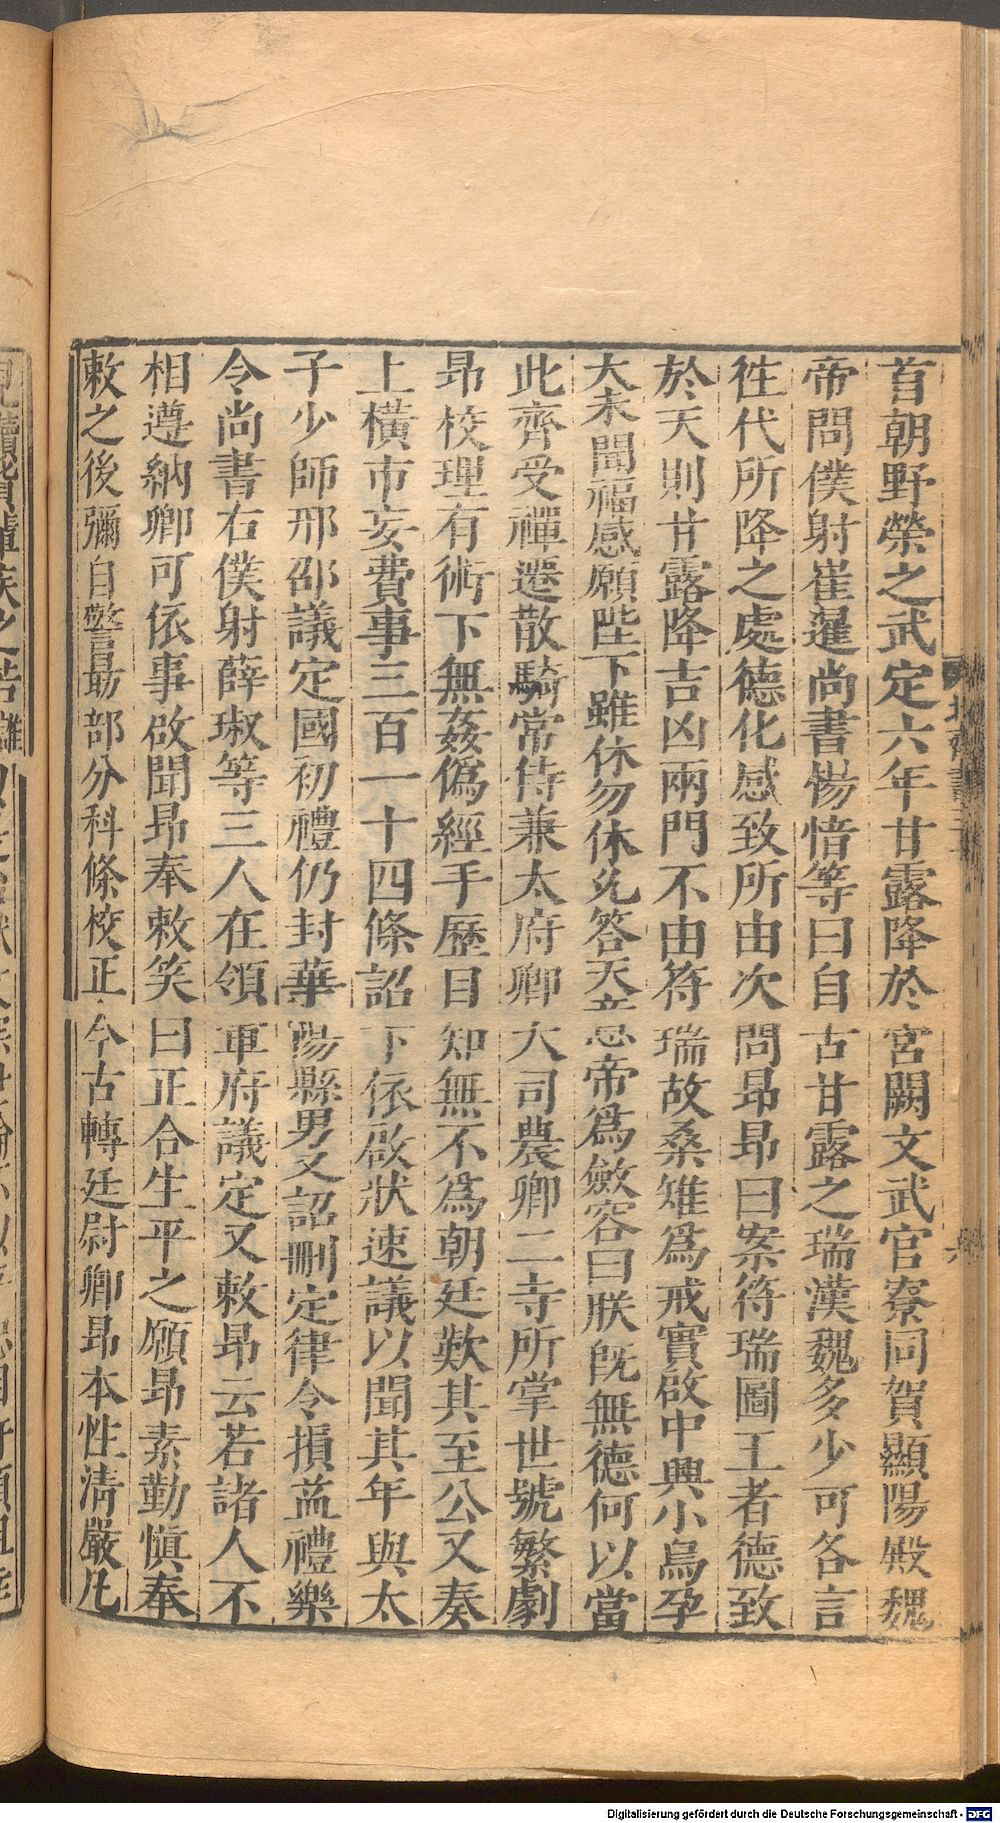 首朝野榮之武定六年甘露降於宮闕文武官寮同賀顯陽殿魏
帝問僕射崔暹尚書楊愔等曰自古甘露之瑞漢魏多少可各言
徃代所降之處德化感致所由次問昂昂曰案符瑞圖王者德致
於天則甘露降吉凶兩門不由符瑞故桑雉爲戒實啟中興小鳥孕
大未聞福感願陛下雖休勿休允答天意帝爲斂容曰朕旣無德何以當
此齊受禪遷散騎常侍兼太府卿大司農卿二寺所掌世號繁劇
昂校理有術下無姦僞經手歷目知無不爲朝廷歎其至公又奏
上橫市妄費事三百一十四條詔下依啟狀速議以聞其年與太
子少師邢邵議定國初禮仍封華陽縣男又詔刪定律令損益禮樂
令尚書右僕射薛琡等三人在領軍府議定又敕昂云若諸人不
相遵納卿可依事啟聞昂奉敕笑曰正合生平之願昂素勤愼奉
敕之後彌自警勗部分科條校正今古轉廷尉卿昂本性清嚴凡
六
Digitalisierung gefördert durch die Deutsche Forschungsgemeinschaft - DFG